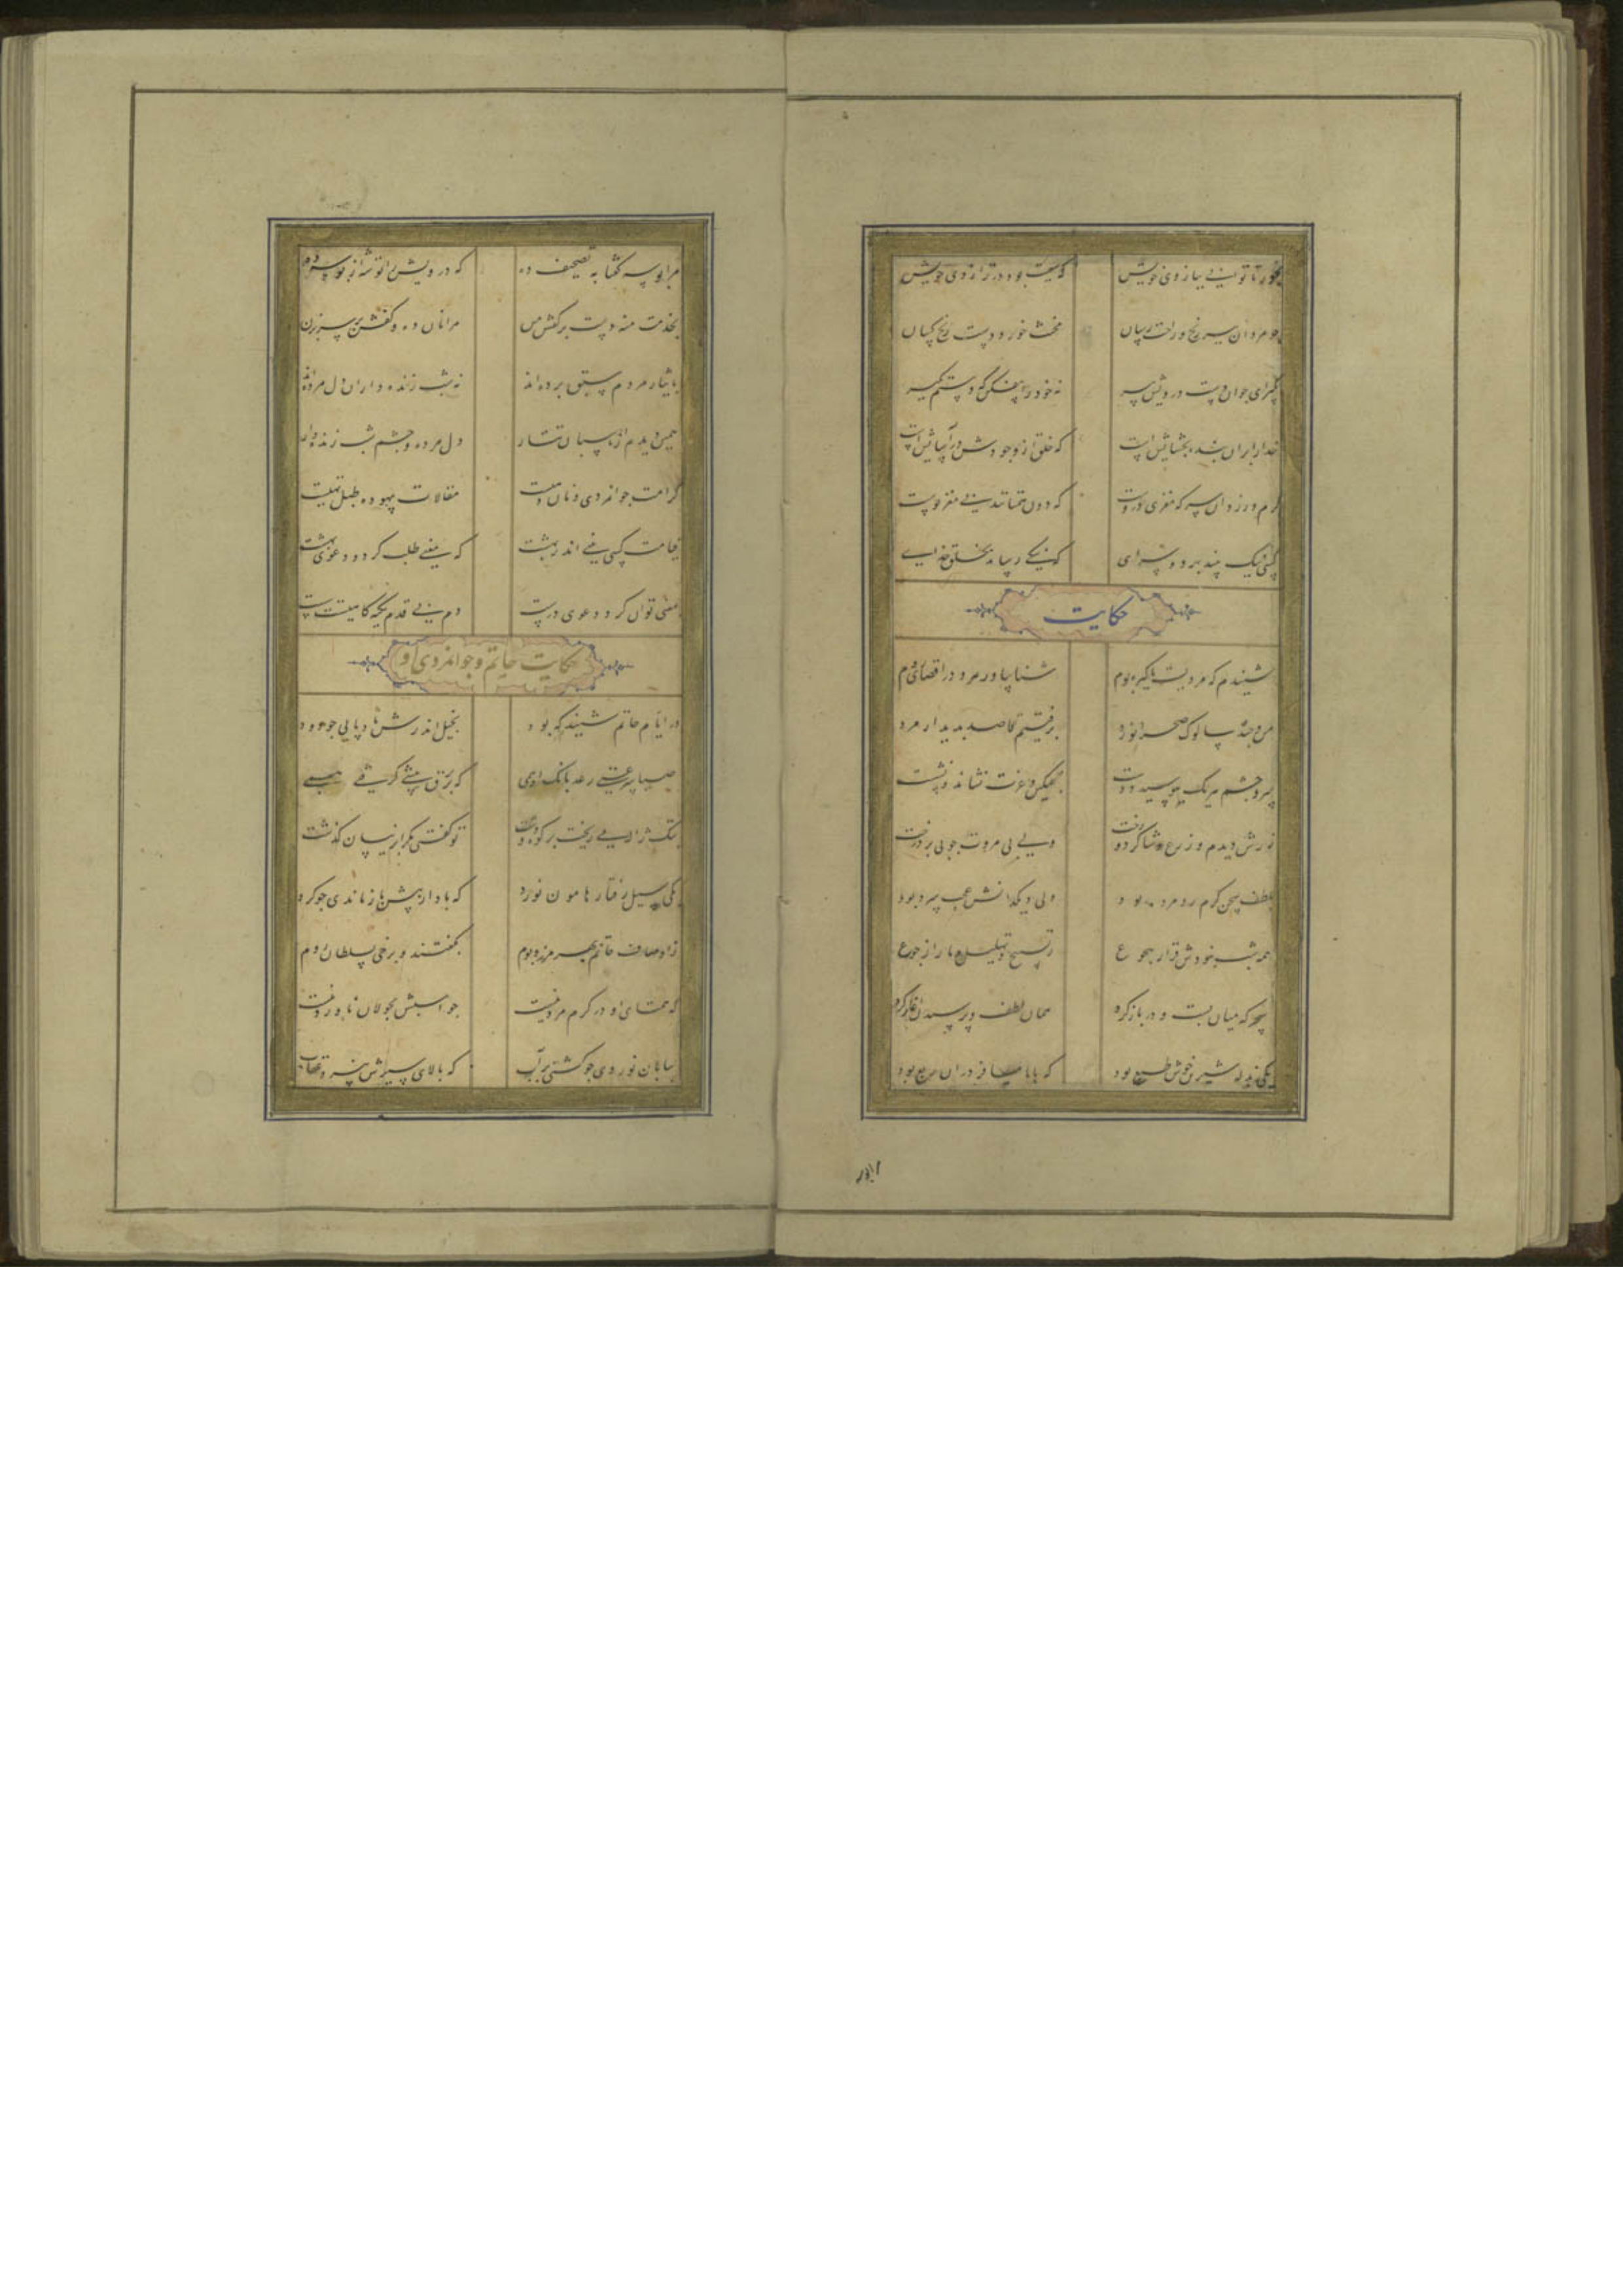 بخور تا توانی ببازوی خویش که سعیت بود در ترازوی خویش
چو مردان ببر رنج و راحت رسان مخنث خورد دست رنج کسان
بگیر ای جوان دست درویش پیر نه خود را بیفکن که دستم بگیر
خدا را بران بنده بخشایش است که خلق از وجودش در آسایش است
کرم ورزد آن سر که مغزی دروست که دون همتانند بی مغز و پوست
کسی نیک بیند بهر دو سرای که نیکی رساند بخلق خدای
حکایت
شنیدم که مردیست پاکیزه بوم شناسا و رهرو در اقصای روم
من و چند سالوک صحرا نورد برفتیم قاصد بدیدار مرد
سر و چشم هر یک ببوسید و دست بتمکین و عزت نشاند و نشست
زرش دیدم و زرع و شاگرد و رخت ولی بی مروت چو بی بر درخت
بلطف سخن گرم رو مرد بود ولی دیگدانش عجب سرد بود
همه شب نبودش قرار هجوع ز تسبیح و تهلیل و ما را ز جوع
سحرگه میان بست و در باز کرد همان لطف و پرسیدن آغاز کرد
یکی بذله شیرین و خوش طبع بود که با ما مسافر در آن ربع بود
مرا بوسه گفتا به تصحیف ده که درویش را توشه از بوسه به
بخدمت منه دست بر کفش من مرا نان ده و کفش بر سر بزن
بایثار مردم سبق برده اند نه شب زنده داران دل مرده اند
همین دیدم از پاسبان تتار دل مرده و چشم شب زنده دار
کرامت جوانمردی و نان دهیست مقالات بیهوده طبل تهیست
قیامت کسی بینی اندر بهشت که معنی طلب کرد و دعوی بهشت
بمعنی توان کرد دعوی درست دم بی قدم تکیه گاهیست سست
حکایت حاتم و جوانمردی او
در ایام حاتم شنیدم که بود بخیل اندرش بادپایی چو دود
صبا سرعتی رعد بانگ ادهمی که بر برق پیشی گرفتی همی
بتک ژاله می ریخت بر کوه و دشت تو گفتی مگر ابر نیسان گذشت
یکی سیل رفتار هامون نورد که باد از پیش باز ماندی چو گرد
ز اوصاف حاتم بهر مرز و بوم بگفتند برخی بسلطان روم
که همتای او در کرم مرد نیست چو اسبش بجولان ناورد نیست
بیابان نوردی چو کشتی بر آب که بالای سیرش نپرد عقاب